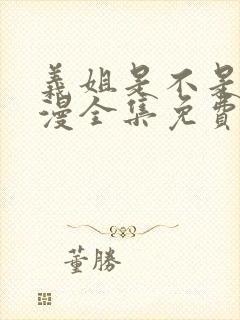 義姐是不是
漫全集免費
董勝